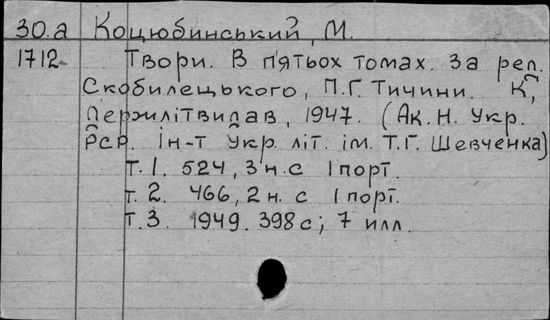 30.а Коцюбинський, М.
1712 Твори. В п'ятьох томах. За рел.
Скобилецького, П.Г. Тичини. К,
Держлітвидав, 1947. (Ак. Н. Укр.
РСР. Ін-т Укр. літ. ім. Т.Г. Шевченка)
Т. 1. 524, 3 н. с 1 порт.
т. 2. 466, 2 н. с 1 порт.
т. 3. 1949. 398 с; 7 илл.